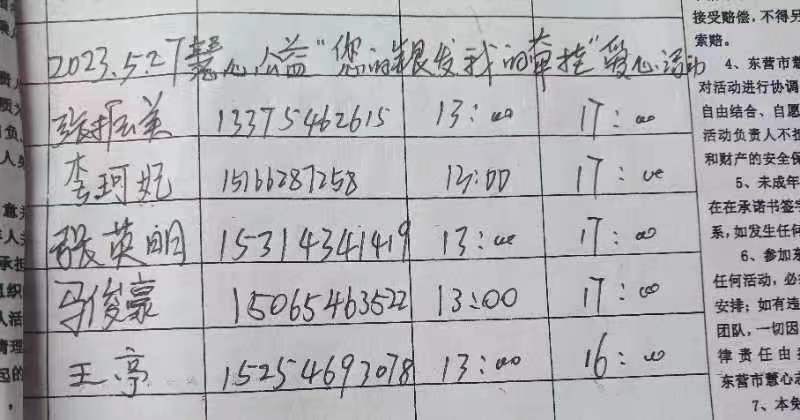 2023.5.27慧心公益"您的银发我的牵挂"爱心活动
张振美 13375462615 13:00 17:00
李珂妃 15166287258 13:00 17:00
程英明 15314341419 13:00 17:00
马俊豪 15065463522 13:00 17:00
王亭 15254693078 13:00 16:00
接受赔偿，不得另
索赔。
4、东营市慧
对活动进行协调
自由结合、自愿
活动负责人不担
和财产的安全保
5、未成年
在在承诺书签字
系，如发生任何
6、参加东
任何活动，必须
安排；如有违
团队，一切因
律责任由
东营市慧心志
7、本免